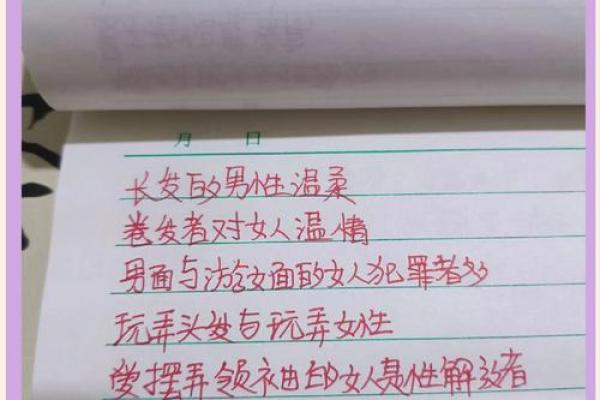 月 日
长发的男性温柔
卷发者对女人温情
男面与法令女面的女人犯罪者多
玩弄头发与玩弄女性
爱摆弄领袖的女人是性解放者